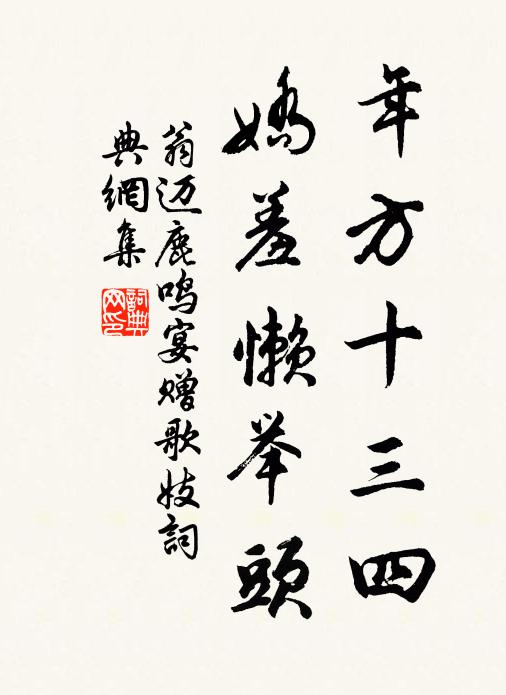 年方十三四
嬌羞懶举頭
翁迈鹿鸣宴赠歌妓詞
典網集
詞典网印